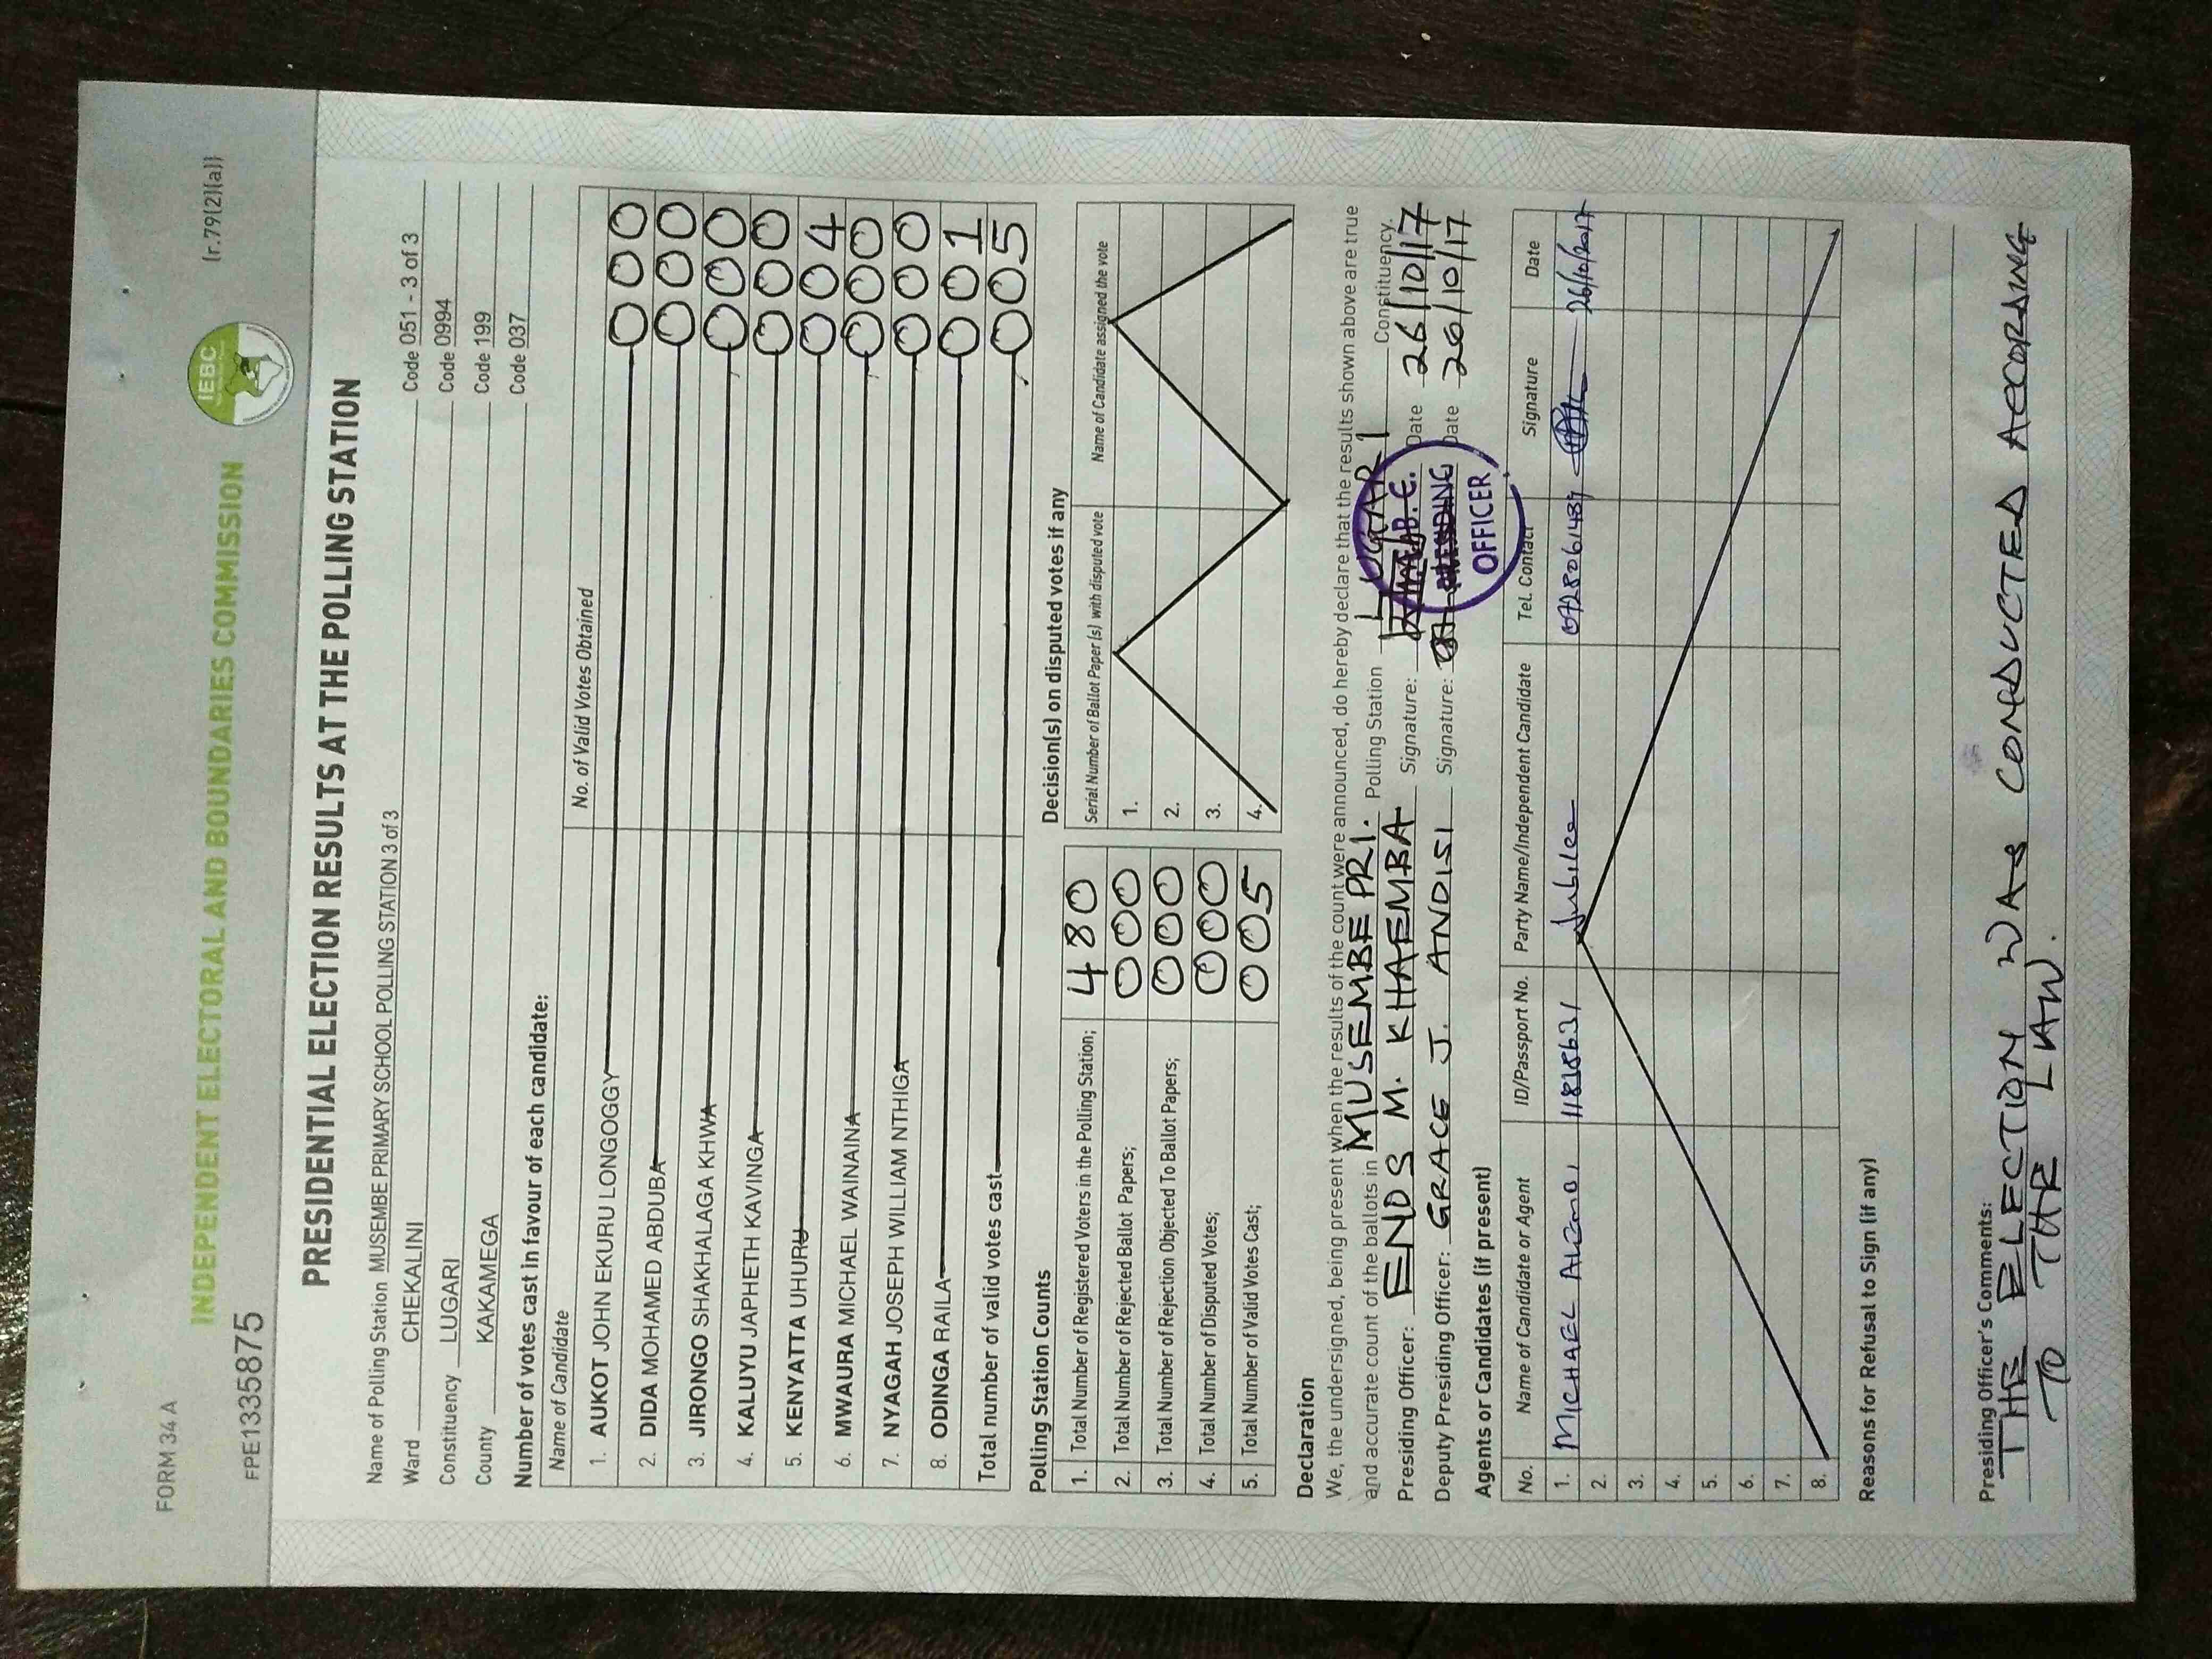 FORM 34 A
(r.79(2)(a))
IEBC
INDEPENDENT ELECTORAL AND BOUNDARIES COMMISSION
FPE1335875
PRESIDENTIAL ELECTION RESULTS AT THE POLLING STATION
Name of Polling Station MUSEMBE PRIMARY SCHOOL POLLING STATION 3 of 3 Code 051 - 3 of 3
Ward CHEKALINI Code 0994
Constituency LUGARI Code 199
County KAKAMEGA Code 037
Number of votes cast in favour of each candidate:
Name of Candidate No. of Valid Votes Obtained
1. AUKOT JOHN EKURU LONGOGGY 000
2. DIDA MOHAMED ABDUBA 000
3. JIRONGO SHAKHALAGA KHWA 000
4. KALUYU JAPHETH KAVINGA 000
5. KENYATTA UHURU 004
6. MWAURA MICHAEL WAINAINA 000
7. NYAGAH JOSEPH WILLIAM NTHIGA 000
8. ODINGA RAILA 001
Total number of valid votes cast 005
Polling Station Counts
1. Total Number of Registered Voters in the Polling Station; 480
2. Total Number of Rejected Ballot Papers; 000
3. Total Number of Rejection Objected To Ballot Papers; 000
4. Total Number of Disputed Votes; 000
5. Total Number of Valid Votes Cast; 005
Decision(s) on disputed votes if any
Serial Number of Ballot Paper (s) with disputed vote Name of Candidate assigned the vote
1.
2.
3.
4.
Declaration
We, the undersigned, being present when the results of the count were announced, do hereby declare that the results shown above are true
and accurate count of the ballots in MUSEMBE PRI. Polling Station LUGARI Constituency.
Presiding Officer: ENOS M. KHAEMBA Signature: Date 26/10/17
Deputy Presiding Officer: GRACE J. ANDISI Signature: Date 26/10/17
PRESIDING
OFFICER
Agents or Candidates (if present)
No. Name of Candidate or Agent ID/Passport No. Party Name/Independent Candidate Tel. Contact Signature Date
1. MICHAEL Jubilee 26/10/2017
2.
3.
4.
5.
6.
7.
8.
Reasons for Refusal to Sign (if any)
Presiding Officer's Comments:
THE ELECTION WAS CONDUCTED ACCORDING
TO THE LAW.